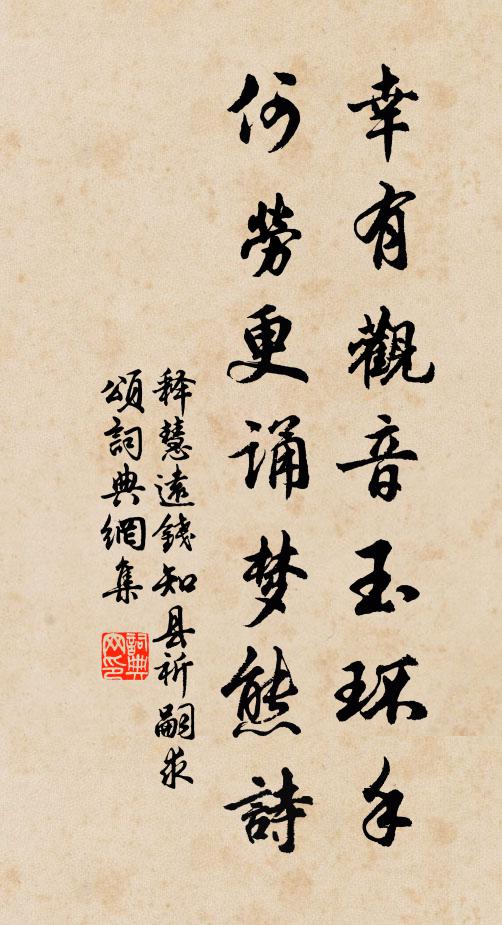 幸有觀音玉环手
何勞更诵梦熊詩
释慧遠錢知县祈嗣求
頌詞典網集
詞典网印